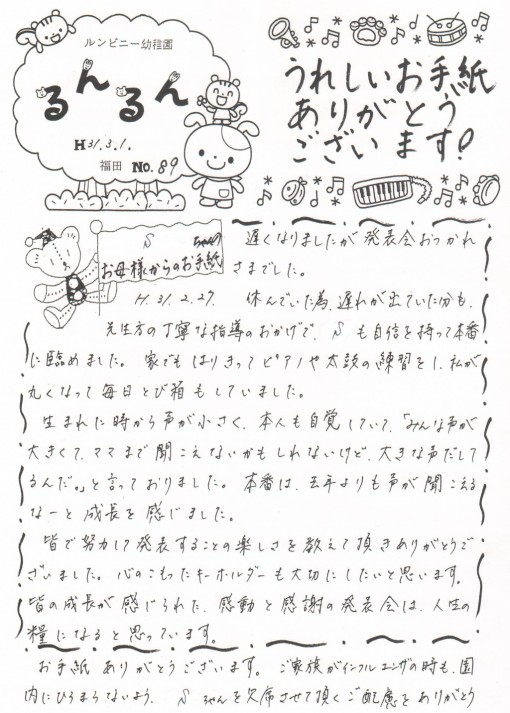 ルンビニー幼稚園
るんるん
H31.3.1.
福田 No.89
うれしいお手紙
ありがとう
ございます!
S ちゃんの
お母様からのお手紙
H.31.2.27.
遅くなりましたが発表会おつかれ
さまでした。
休んでいた為、遅れが出ていた分も、
先生方の丁寧な指導のおかげで、Sも自信を持って本番
に臨めました。家でもはりきってピアノや太鼓の練習をし、私が
丸くなって毎日とび箱もしていました。
生まれた時から声が小さく、本人も自覚していて、「みんな声が
大きくて、ママまで聞こえないかもしれないけど、大きな声だして
るんだ。」と言っておりました。本番は、去年よりも声が聞こえる
なーと成長を感じました。
皆で努力して発表することの楽しさを教えて頂きありがとうご
ざいました。心のこもったキーホルダーも大切にしたいと思います。
皆の成長が感じられた、感動と感謝の発表会は、人生の
糧になると思っています。
お手紙ありがとうございます。ご家族がインフルエンザの時も、園
内にひろまらないよう、Sちゃんを欠席させて頂くご配慮をありがとう